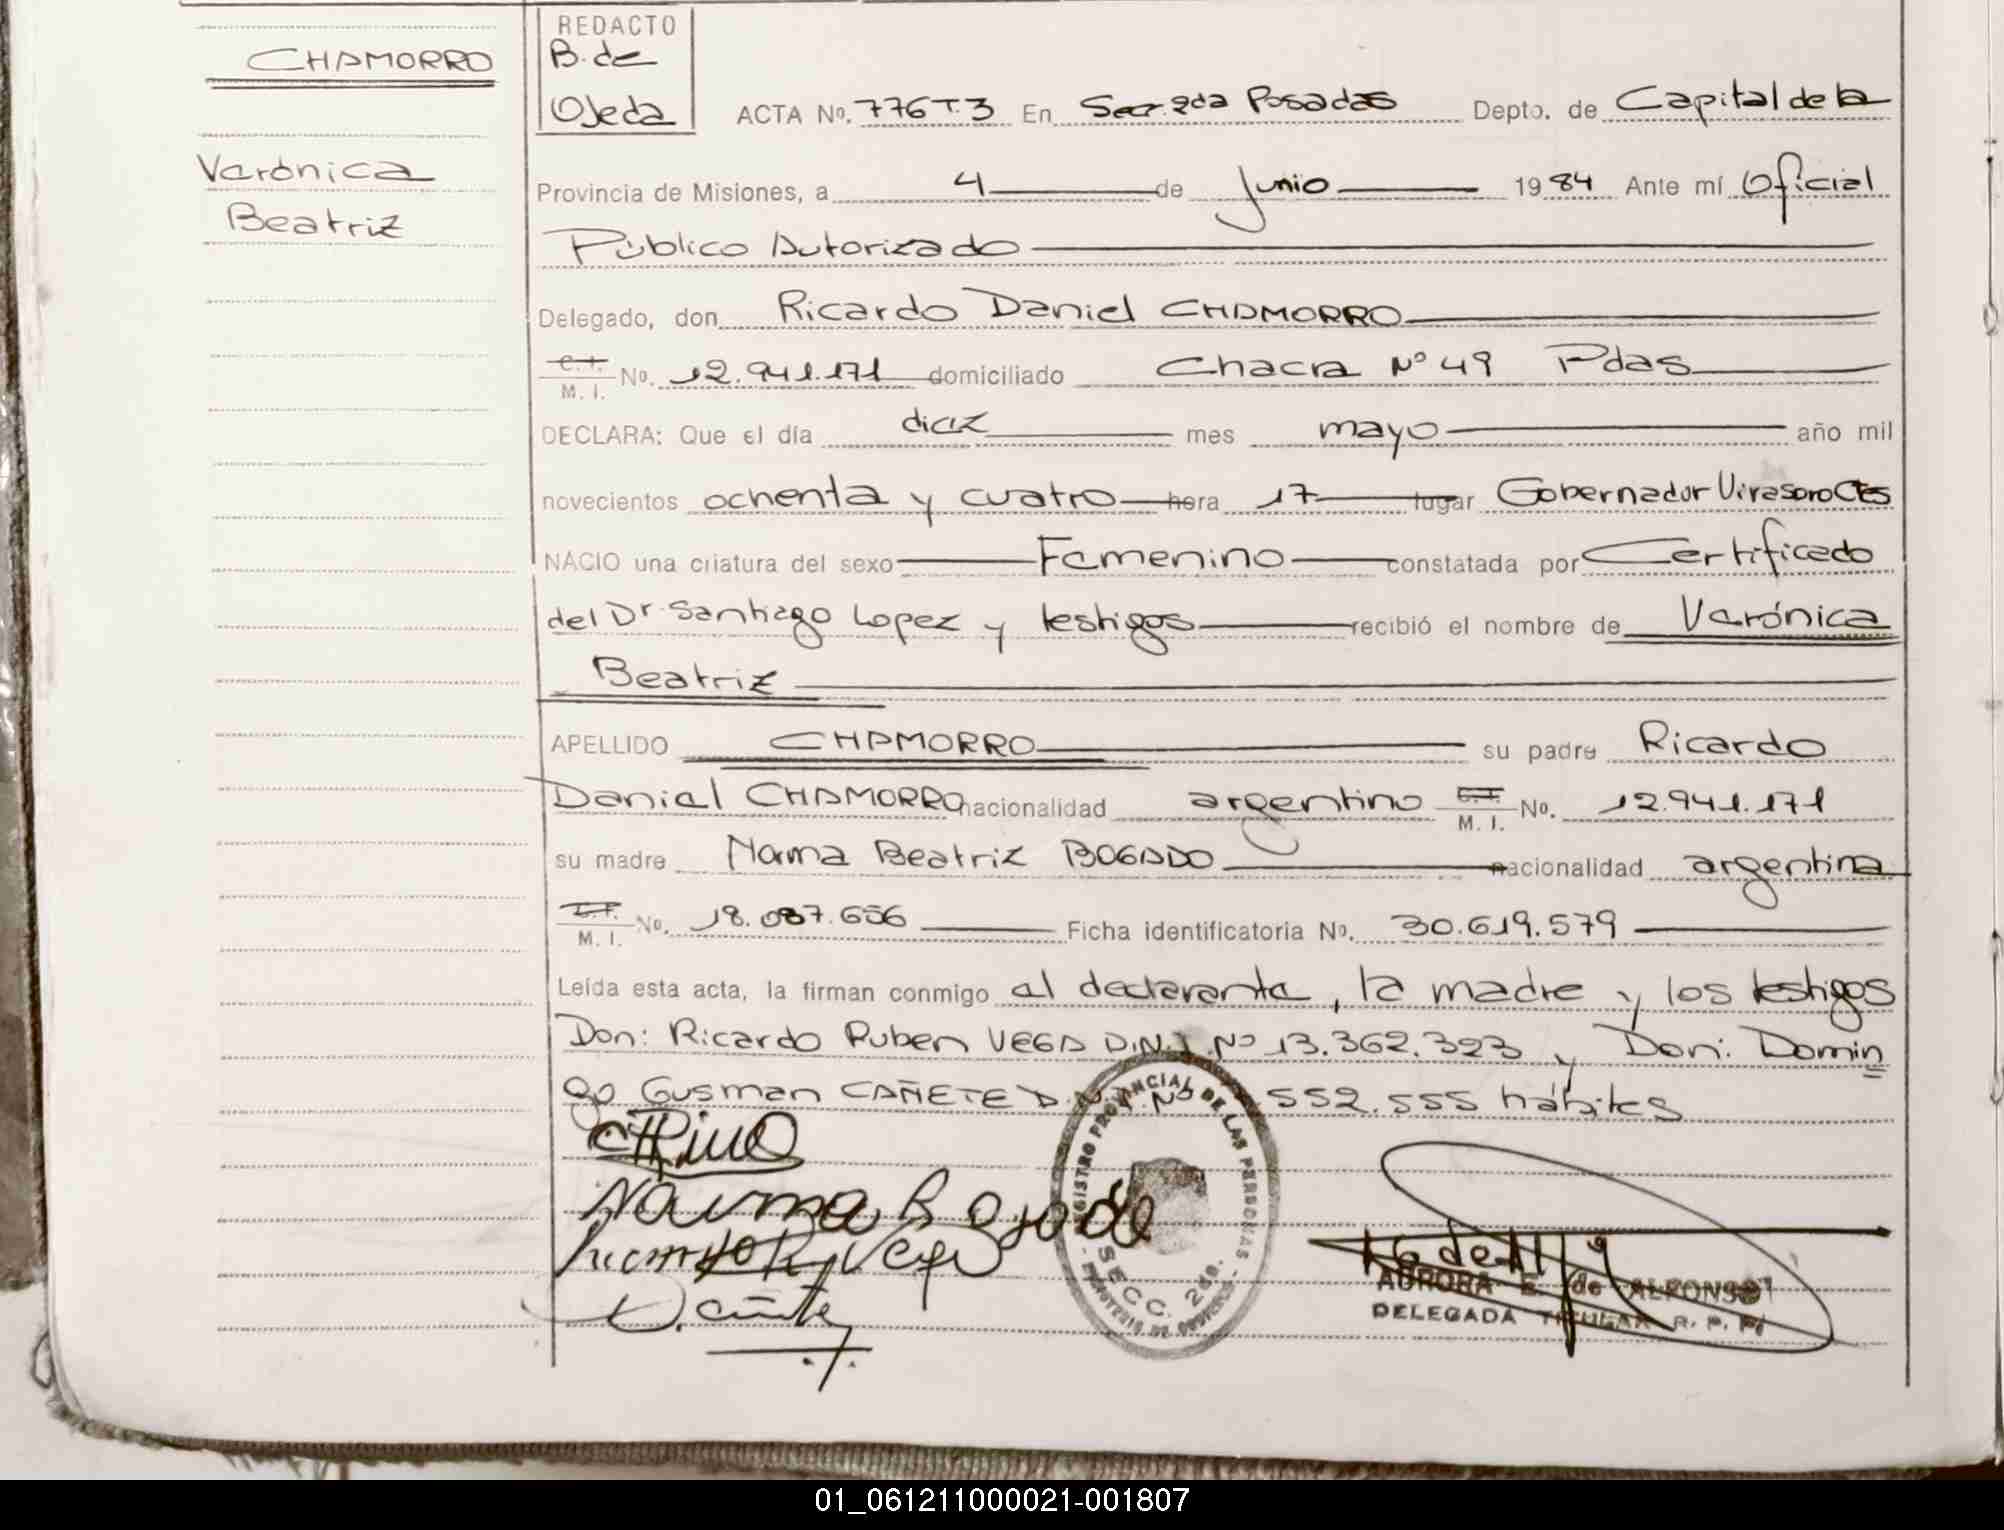 CHAMORRO
Verónica
Beatriz
REDACTO
B. de
Ojeda
ACTA No. 776 T.3 En Secc. 2da Posadas Depto. de Capital de la
Provincia de Misiones, a 4 de Junio 1984 Ante mí Oficial
Público Autorizado
Delegado, don Ricardo Daniel CHAMORRO
C.I. M. I. No. 12.941.171 domiciliado Chacra Nº 49 Pdas
DECLARA: Que el día diez mes mayo año mil
novecientos ochenta y cuatro hora 17 lugar Gobernador Virasoro Ctes
NACIO una criatura del sexo Femenino constatada por Certificado
del Dr. Santiago Lopez y testigos recibió el nombre de Verónica
Beatriz
APELLIDO CHAMORRO su padre Ricardo
Daniel CHAMORRO nacionalidad argentino C.I. M. I. No. 12.941.171
su madre Norma Beatriz BOGADO nacionalidad argentina
C.I. M. I. No. 18.087.656 Ficha identificatoria No. 30.619.579
Leída esta acta, la firman conmigo el declarante, la madre y los testigos
Don: Ricardo Ruben VEGA D.N.I. Nº 13.362.323 y Don: Domin
go Gusman CAÑETE D.N.I. Nº 552.555 hábiles
Norma B Bogado
Ricardo R. Vega
D. Cañete
REGISTRO PROVINCIAL DE LAS PERSONAS
SECC. 2da.
AURORA E. de ALFONSO
DELEGADA TITULAR R. P. P.
01_061211000021-001807